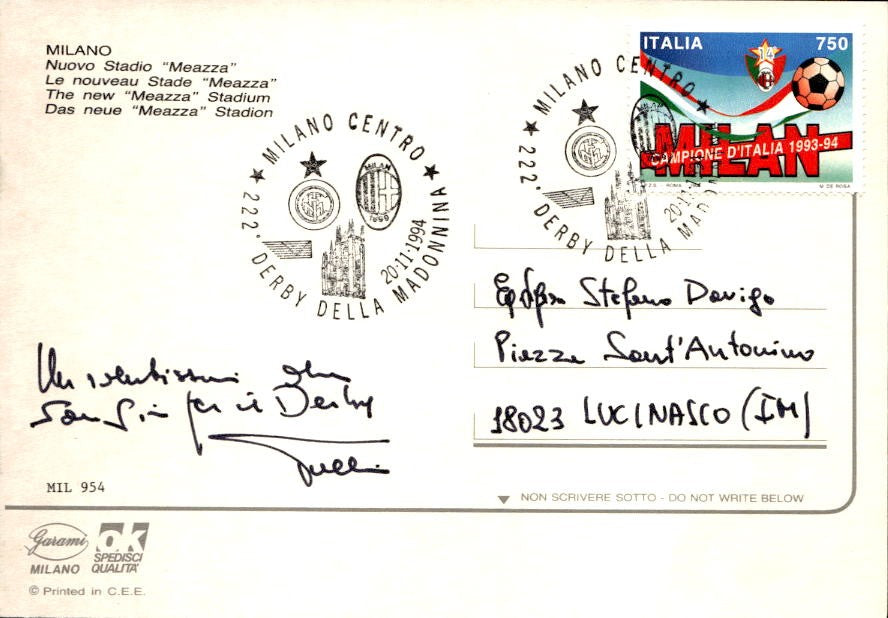 MILANO
Nuovo Stadio "Meazza"
Le nouveau Stade "Meazza"
The new "Meazza" Stadium
Das neue "Meazza" Stadion
★ MILANO CENTRO ★
222ª DERBY DELLA MADONNINA
20·11·1994
MILAN
1899
★ MILANO CENTRO ★
222ª DERBY DELLA MADONNINA
20·11·1
ITALIA 750
14
MILAN
CAMPIONE D'ITALIA 1993-94
I.P.Z.S. - ROMA M. DE ROSA
Stefano Davigo
Piazza Sant'Antonino
18023 LUCINASCO (IM)
Un
San Siro per il Derby
MIL 954
NON SCRIVERE SOTTO - DO NOT WRITE BELOW
Garami
MILANO
ok
SPEDISCI
QUALITA'
© Printed in C.E.E.